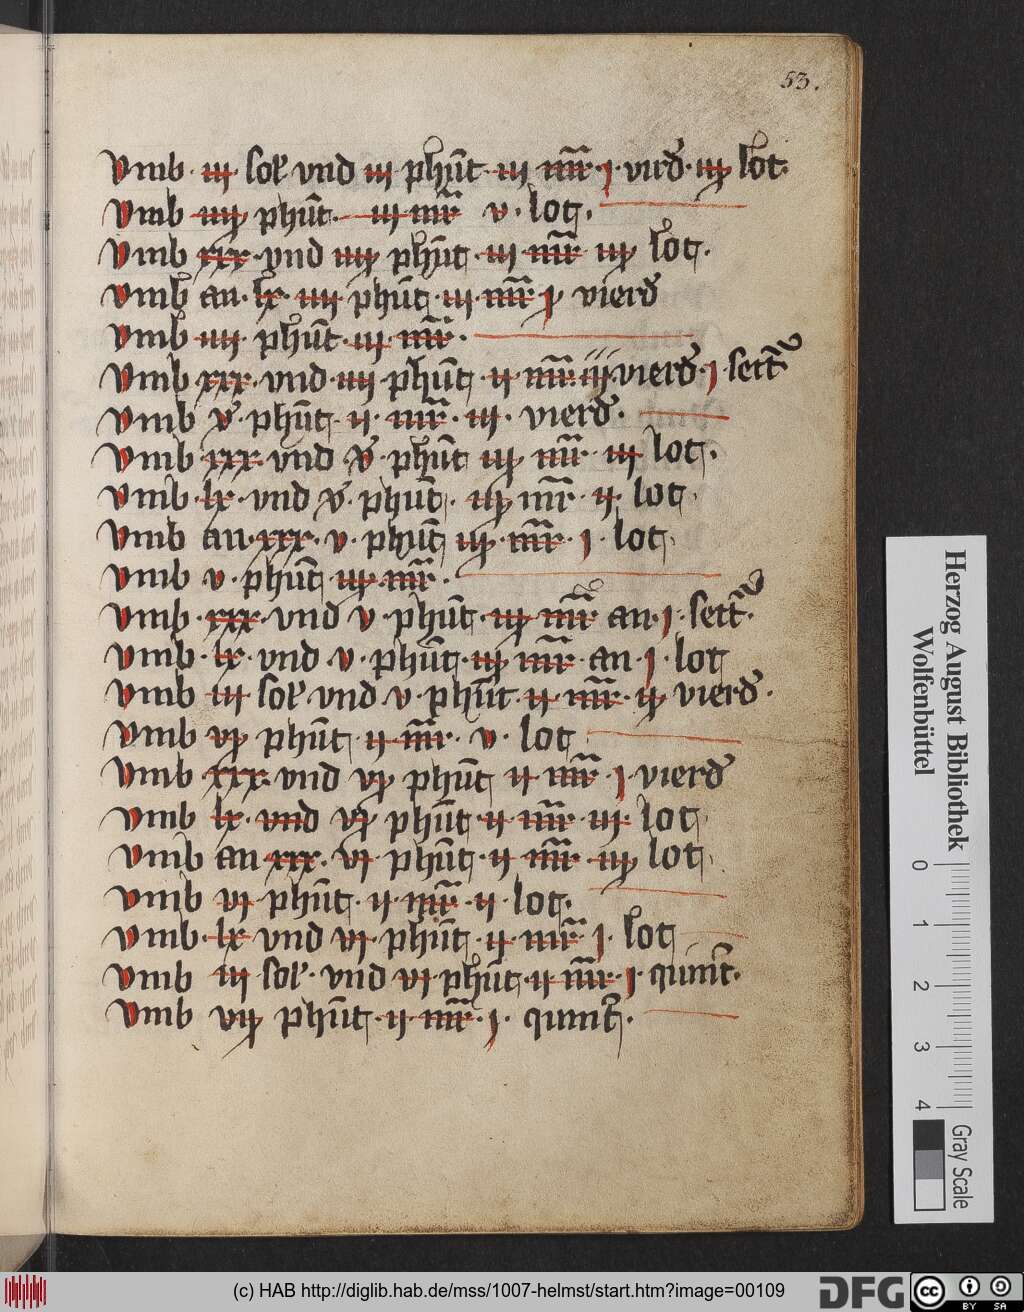 53.
vmb · iij · sol vnd iij · phūt · iij mr̄ · j · vird̄ · iiij lot
vmb iiij phūt · iij mr̄ v · lot
vmb xxx · vnd iiij phūt · iij · mr̄ iiij lot ·
vmb an · lx · iiij phūt · iij · mr̄ j vierd̄
vmb · iiij · phūt · iij · mr̄ ·
vmb xxx · vnd · iiij · phūt · ij mr̄ iij · vierd̄ · j
vmb phūt · ij · mr̄ · iij · vierd̄ ·
vmb xxx · vnd · phūt iij mr̄ iij lot ·
vmb · lx · vnd phūt · iij mr̄ · ij · lot
vmb an · xxx · v · phūt iij · mr̄ · j · lot
vmb v · phūt iij · mr̄ ·
vmb · xxx · vnd v · phūt · iij mr̄ an · j ·
vmb · lx · vnd · v · phūt · iij mr̄ · an · j · lot
vmb iij sol · vnd v · phūt ij · mr̄ · ij vierd̄ ·
vmb vj phūt · ij · mr̄ · v · lot
vmb xxx · vnd vj phūt ij mr̄ j · vierd̄
vmb lx · vnd vj phūt · ij · mr̄ · iij · lot
vmb an · xxx · vj · phūt · ij · mr̄ · iiij lot
vmb vj · phūt · ij · mr̄ · ij · lot ·
vmb · lx vnd vj · phūt · ij mr̄ j · lot
vmb iij sol · vnd vj · phūt · ij · mr̄ · j · quint ·
vmb vij phūt · ij · mr̄ · j · quint ·
Herzog August Bibliothek
Wolfenbüttel
0 1 2 3 4
Gray Scale
(c) HAB http://diglib.hab.de/mss/1007-helmst/start.htm?image=00109
DFG
cc BY SA